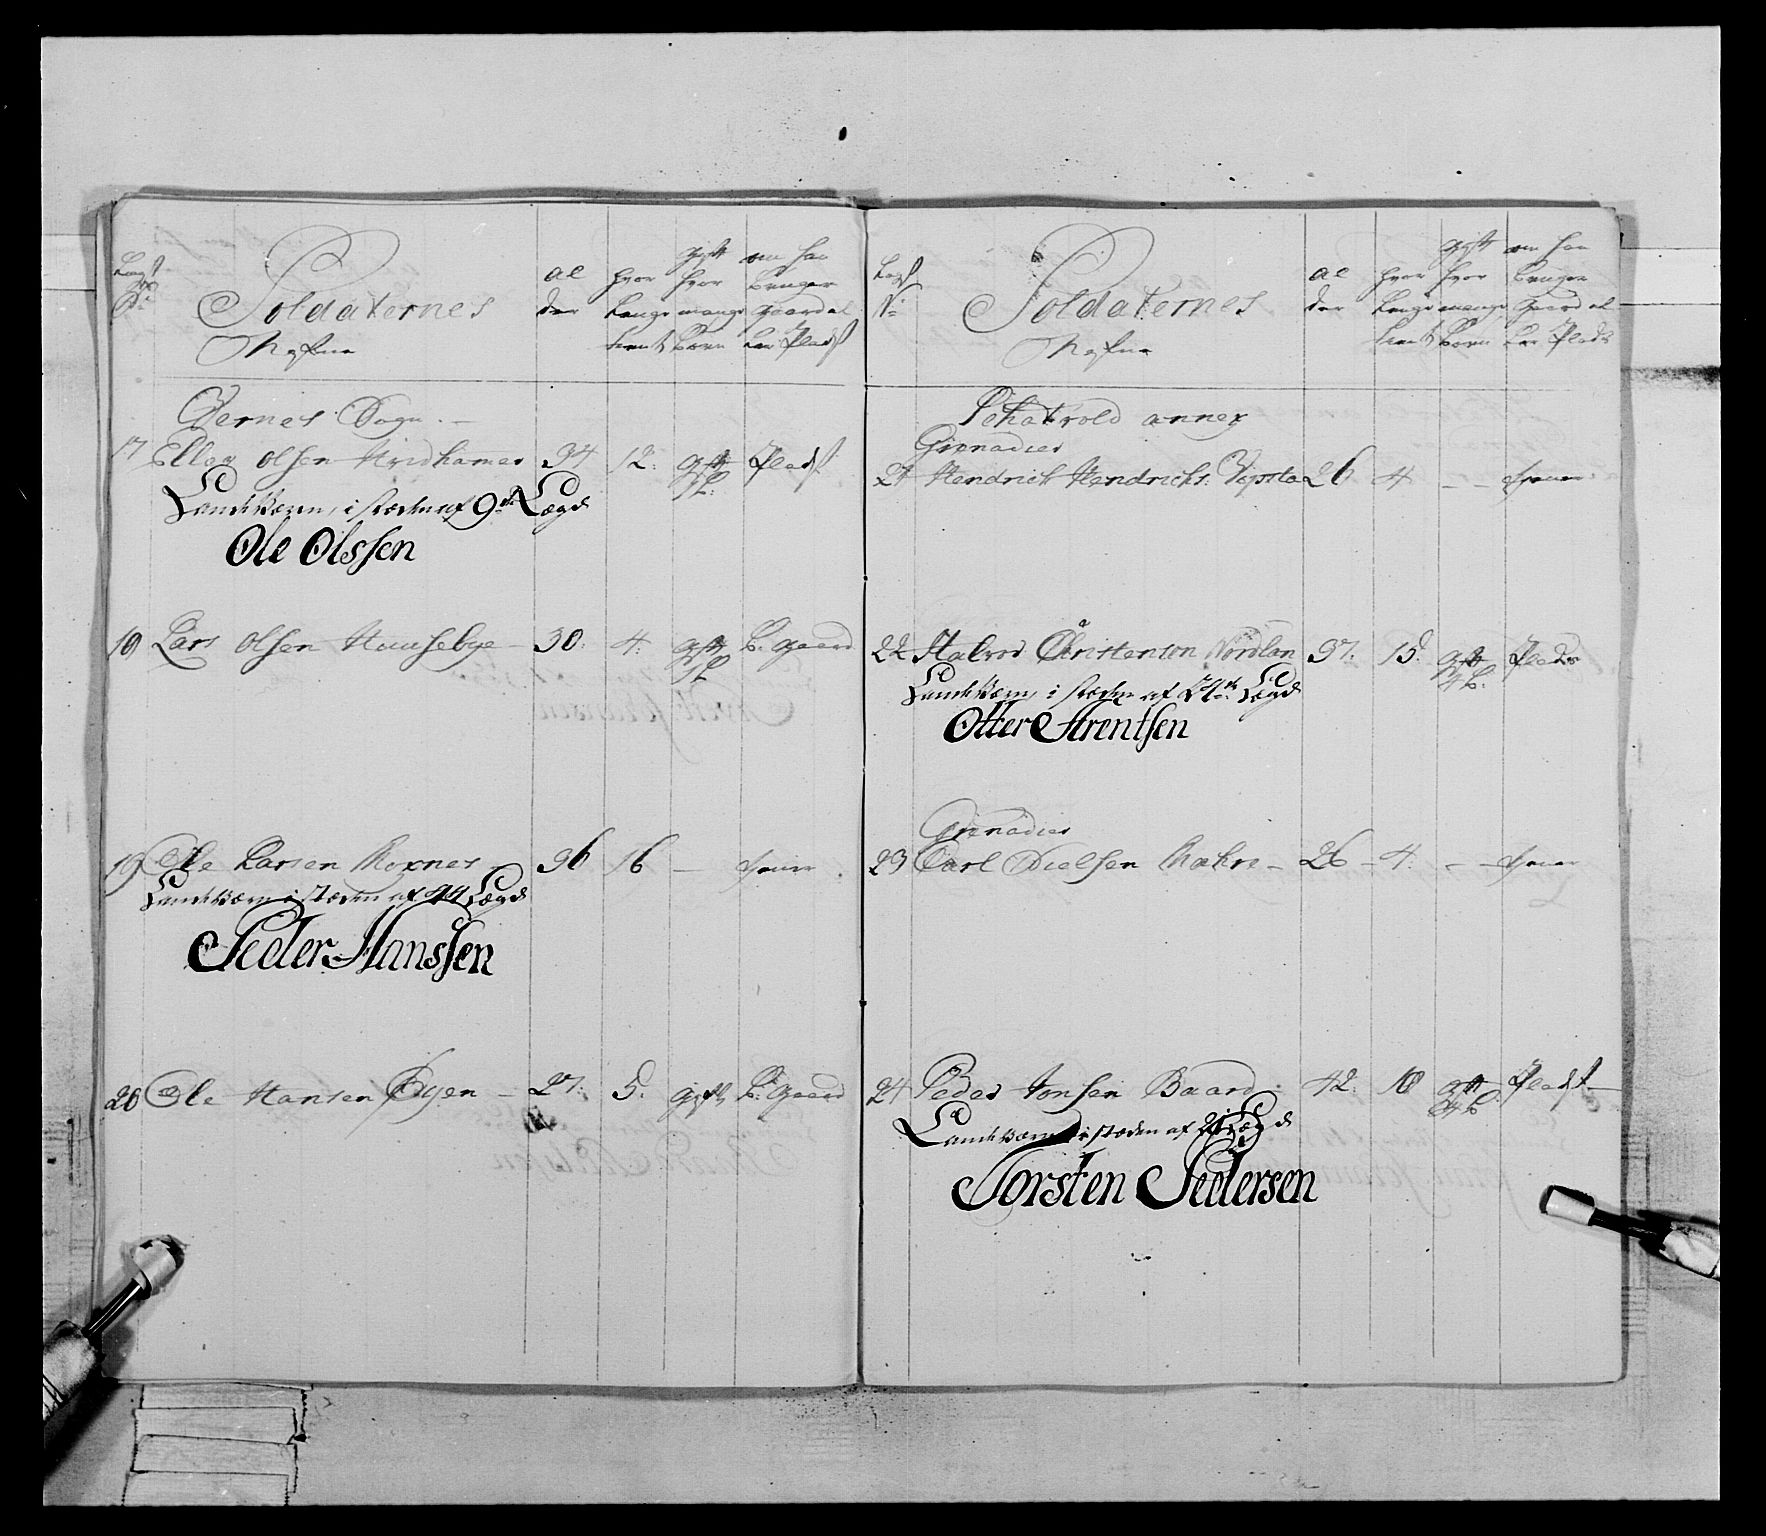 Lægd
No
Soldaternes
Nafne
al
der
hvor
Lenge
tient
gift
hvor
mange
Børn
om han
bruger
gaard el
ler Pladß
Vernes Sogn. -
17 Ellev Olsen Hridhamer 34 12: gift Pladß
LandtVærn, i stæden af 9de Lægd
Ole Olssen
18 Lars Olsen Huusebye - 30: 4: gift b. gaard
19 Ole Larsen Moxnes - 36 16 -
LandtVærn i stæden af 44 Lægd
Peder Hanssen
20 Ole Hansen Øyen - 27: 5. gift b. gaard
Lægd
No
Soldaternes
Nafne
al
der
hvor
Lenge
tient
gift
hvor
mange
Børn
om han
bruger
gaard el
ler Plads
Schatvold annex
Grenadier
21 Hendrich Hendrichs. 26 4 - -
22 Halvor Christensen Nordlan 37: 15: gift 4 b: Plads
LandtVærn, i stæden af Lægd
Otter Arentsen
Grenadier
23 Carl Nielsen - 26 - 4: - -
24 Peder Jonsen Baard. 42: 18 gift Pladß -
LandtVærn i stæden af Lægd
Torsten Pedersen